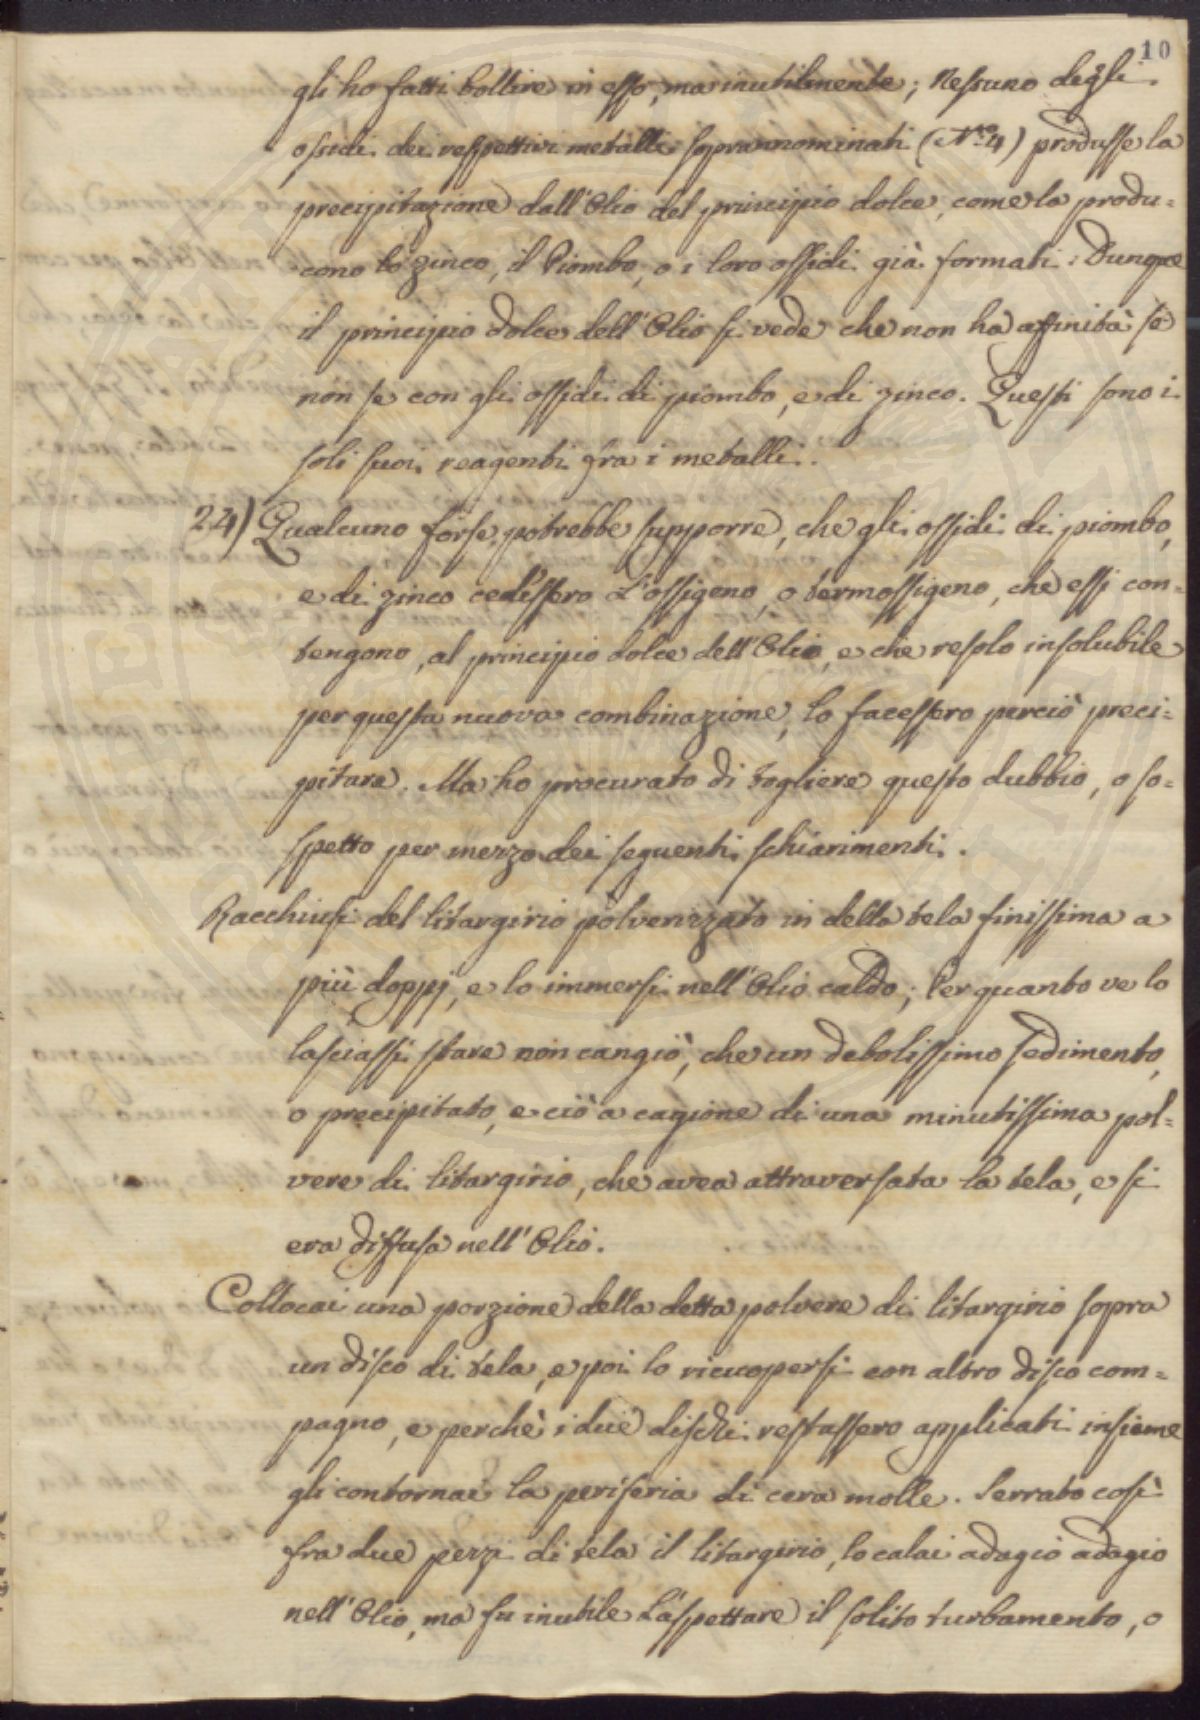 10
gli ho fatti bollire in esso, ma inutilmente; Nessuno degli
ossidi dei respettivi metalli soprannominati (N.º 4) produsse la
precipitazione dall'Olio del principio dolce, come la produ=
cono lo zinco, il Piombo, o i loro ossidi già formati: Dunque
il principio dolce dell'Olio si vede che non ha affinità se
non se con gli ossidi di piombo, e di zinco. Questi sono i
soli suoi reagenti fra i metalli.
24) Qualcuno forse potrebbe supporre, che gli ossidi di piombo,
e di zinco cedessero L'ossigeno, o termossigeno, che essi con=
tengono, al principio dolce dell'Olio, e che resolo insolubile
per questa nuova combinazione, lo facessero perciò preci=
pitare. Ma ho procurato di togliere questo dubbio, o so=
spetto per mezzo dei seguenti schiarimenti.
Racchiusi del litargirio polverizzato in della tela finissima a
più doppj, e lo immersi nell'Olio caldo; Per quanto ve lo
lasciassi stare non cangiò, che un debolissimo sedimento,
o precipitato, e ciò a cagione di una minutissima pol=
vere di litargirio, che avea attraversata la tela, e si
era diffusa nell'Olio.
Collocai una porzione della detta polvere di litargirio sopra
un disco di tela, e poi lo ricuopersi con altro disco com=
pagno, e perchè i due dischi restassero applicati insieme
gli contornai la periferia di cera molle. Serrato così
fra due pezzi di tela il litargirio, lo calai adagio adagio
nell'Olio, ma fu inutile L'aspettare il solito turbamento, o